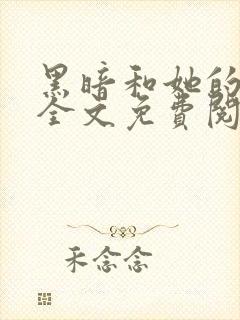 黑暗和她的
全文免費閱
禾念念